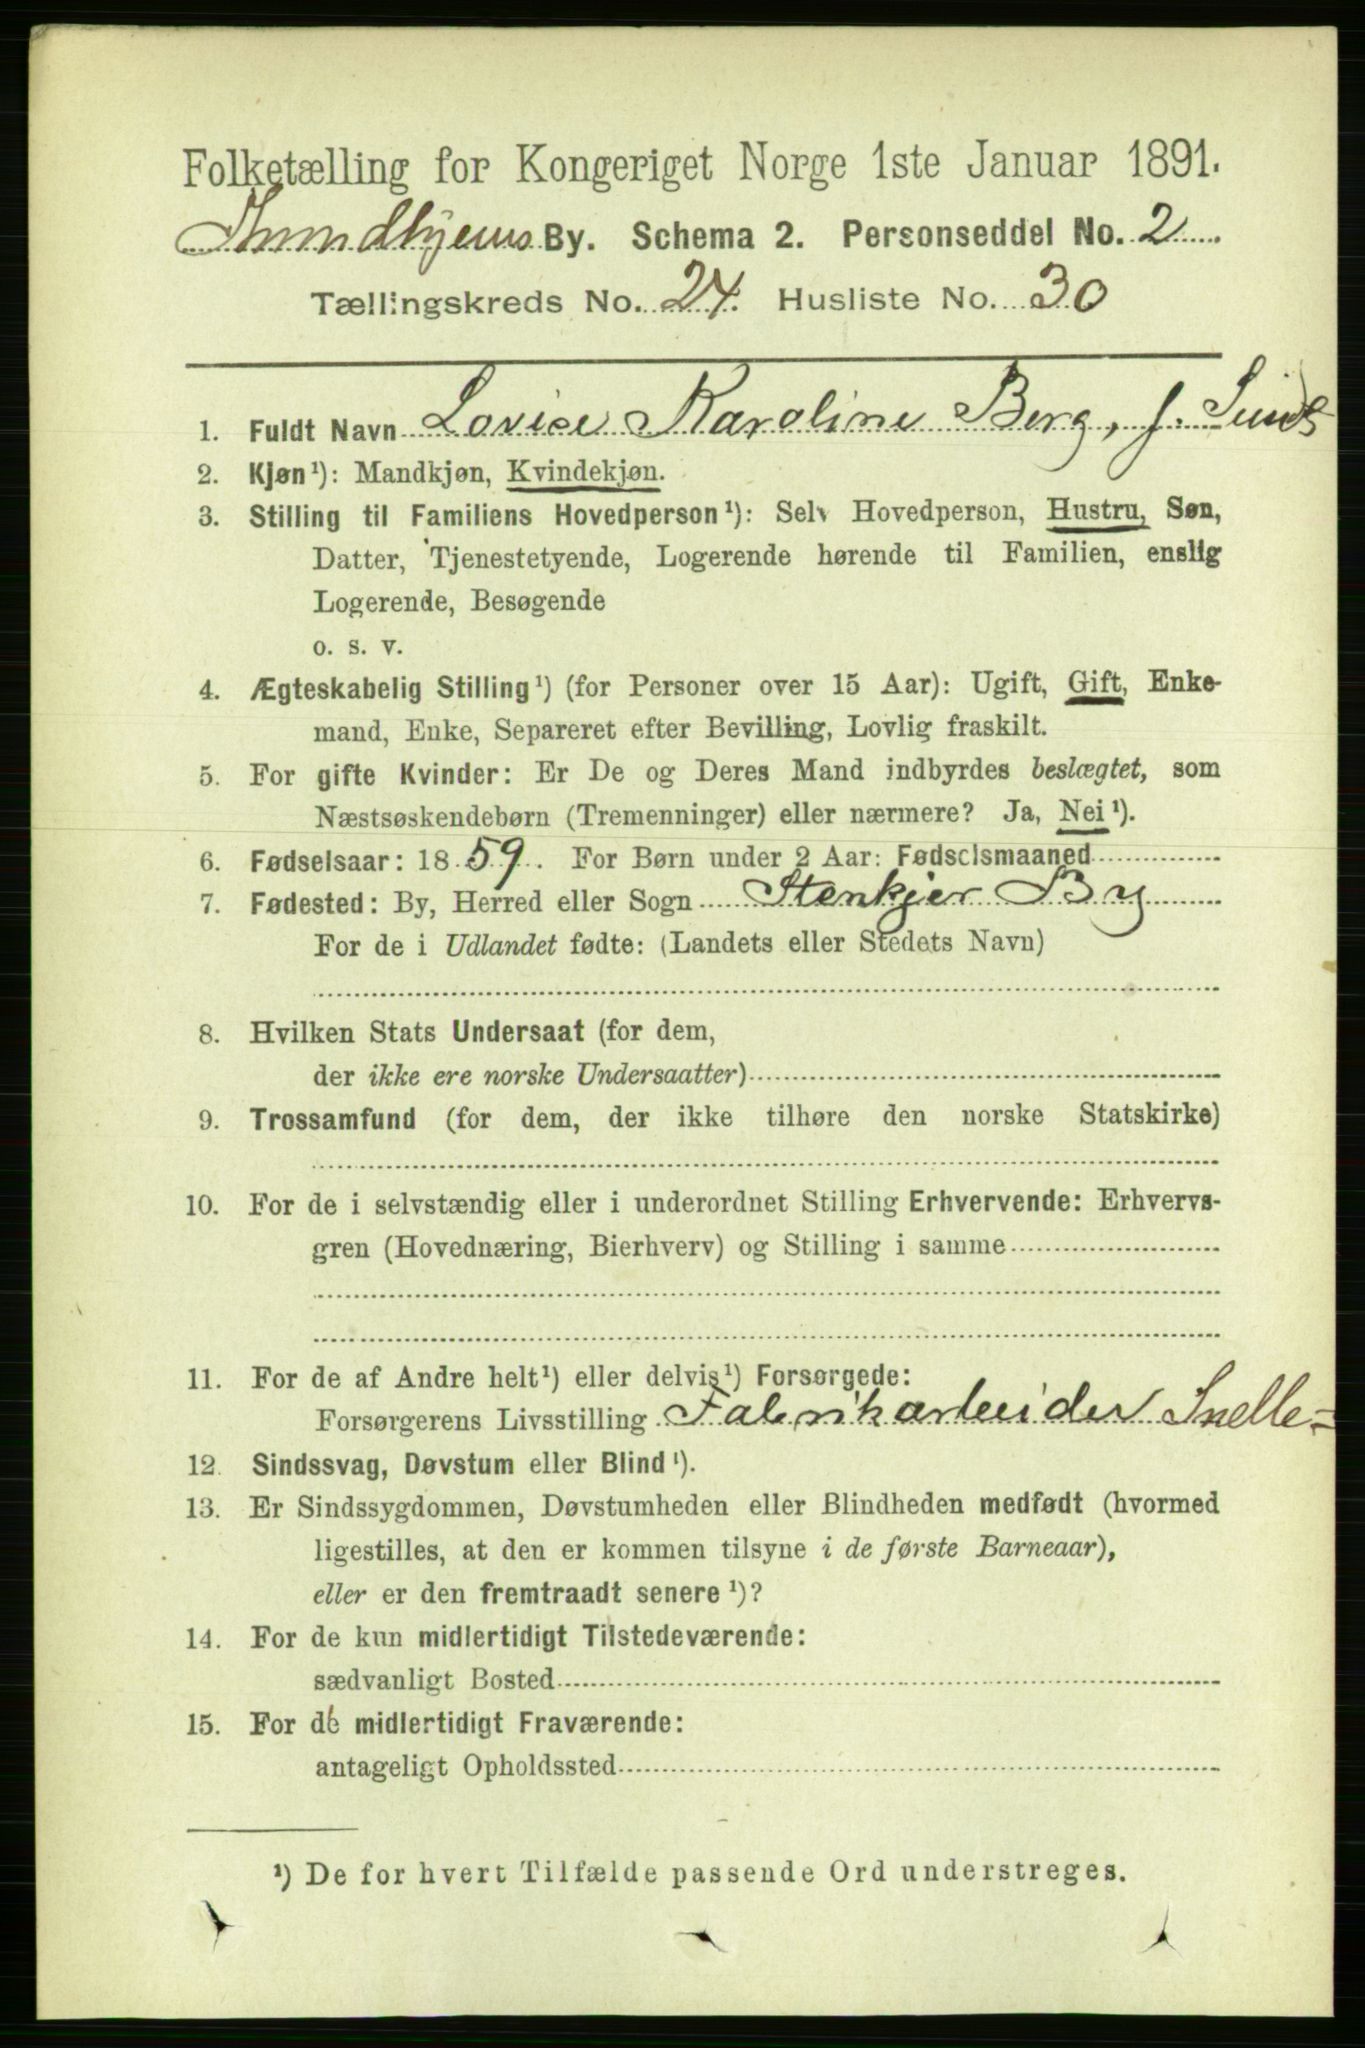 Folketælling for Kongeriget Norge 1ste Januar 1891.
Trondhjems By. Schema 2. Personseddel No. 2
Tællingskreds No. 24. Husliste No. 30
1. Fuldt Navn Lovise Karoline Berg, f. Sund
2. Kjøn¹): Mandkjøn, Kvindekjøn.
3. Stilling til Familiens Hovedperson¹): Selv Hovedperson, Hustru, Søn,
Datter, Tjenestetyende, Logerende hørende til Familien, enslig
Logerende, Besøgende
o. s. v.
4. Ægteskabelig Stilling¹) (for Personer over 15 Aar): Ugift, Gift, Enke-
mand, Enke, Separeret efter Bevilling, Lovlig fraskilt.
5. For gifte Kvinder: Er De og Deres Mand indbyrdes beslægtet, som
Næstsøskendebørn (Tremenninger) eller nærmere? Ja, Nei¹).
6. Fødselsaar: 1859. For Børn under 2 Aar: Fødselsmaaned
7. Fødested: By, Herred eller Sogn Stenkjer By
For de i Udlandet fødte: (Landets eller Stedets Navn)
8. Hvilken Stats Undersaat (for dem,
der ikke ere norske Undersaatter)
9. Trossamfund (for dem, der ikke tilhøre den norske Statskirke)
10. For de i selvstændig eller i underordnet Stilling Erhvervende: Erhvervs-
gren (Hovednæring, Bierhverv) og Stilling i samme
11. For de af Andre helt¹) eller delvis¹) Forsørgede:
Forsørgerens Livsstilling Fabrikarbeider Snelle=
12. Sindssvag, Døvstum eller Blind¹).
13. Er Sindssygdommen, Døvstumheden eller Blindheden medfødt (hvormed
ligestilles, at den er kommen tilsyne i de første Barneaar),
eller er den fremtraadt senere¹)?
14. For de kun midlertidigt Tilstedeværende:
sædvanligt Bosted
15. For de midlertidigt Fraværende:
antageligt Opholdssted
¹) De for hvert Tilfælde passende Ord understreges.